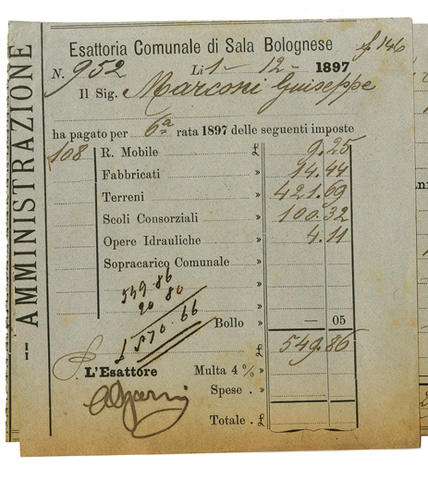 AMMINISTRAZIONE
Esattoria Comunale di Sala Bolognese
N. 952 Lì 1- 12- 1897
Il Sig. Marconi Guiseppe
ha pagato per 6a rata 1897 delle seguenti imposte
108 R. Mobile £ 9.25
Fabbricati » 14.44
Terreni » 421.69
Scoli Consorziali » 100.32
Opere Idrauliche » 4.11
Sopracarico Comunale »
549.86
20 80
£ 570.66
Bollo » — 05
549.86
L'Esattore
Multa 4 % »
Spese . »
Totale . £